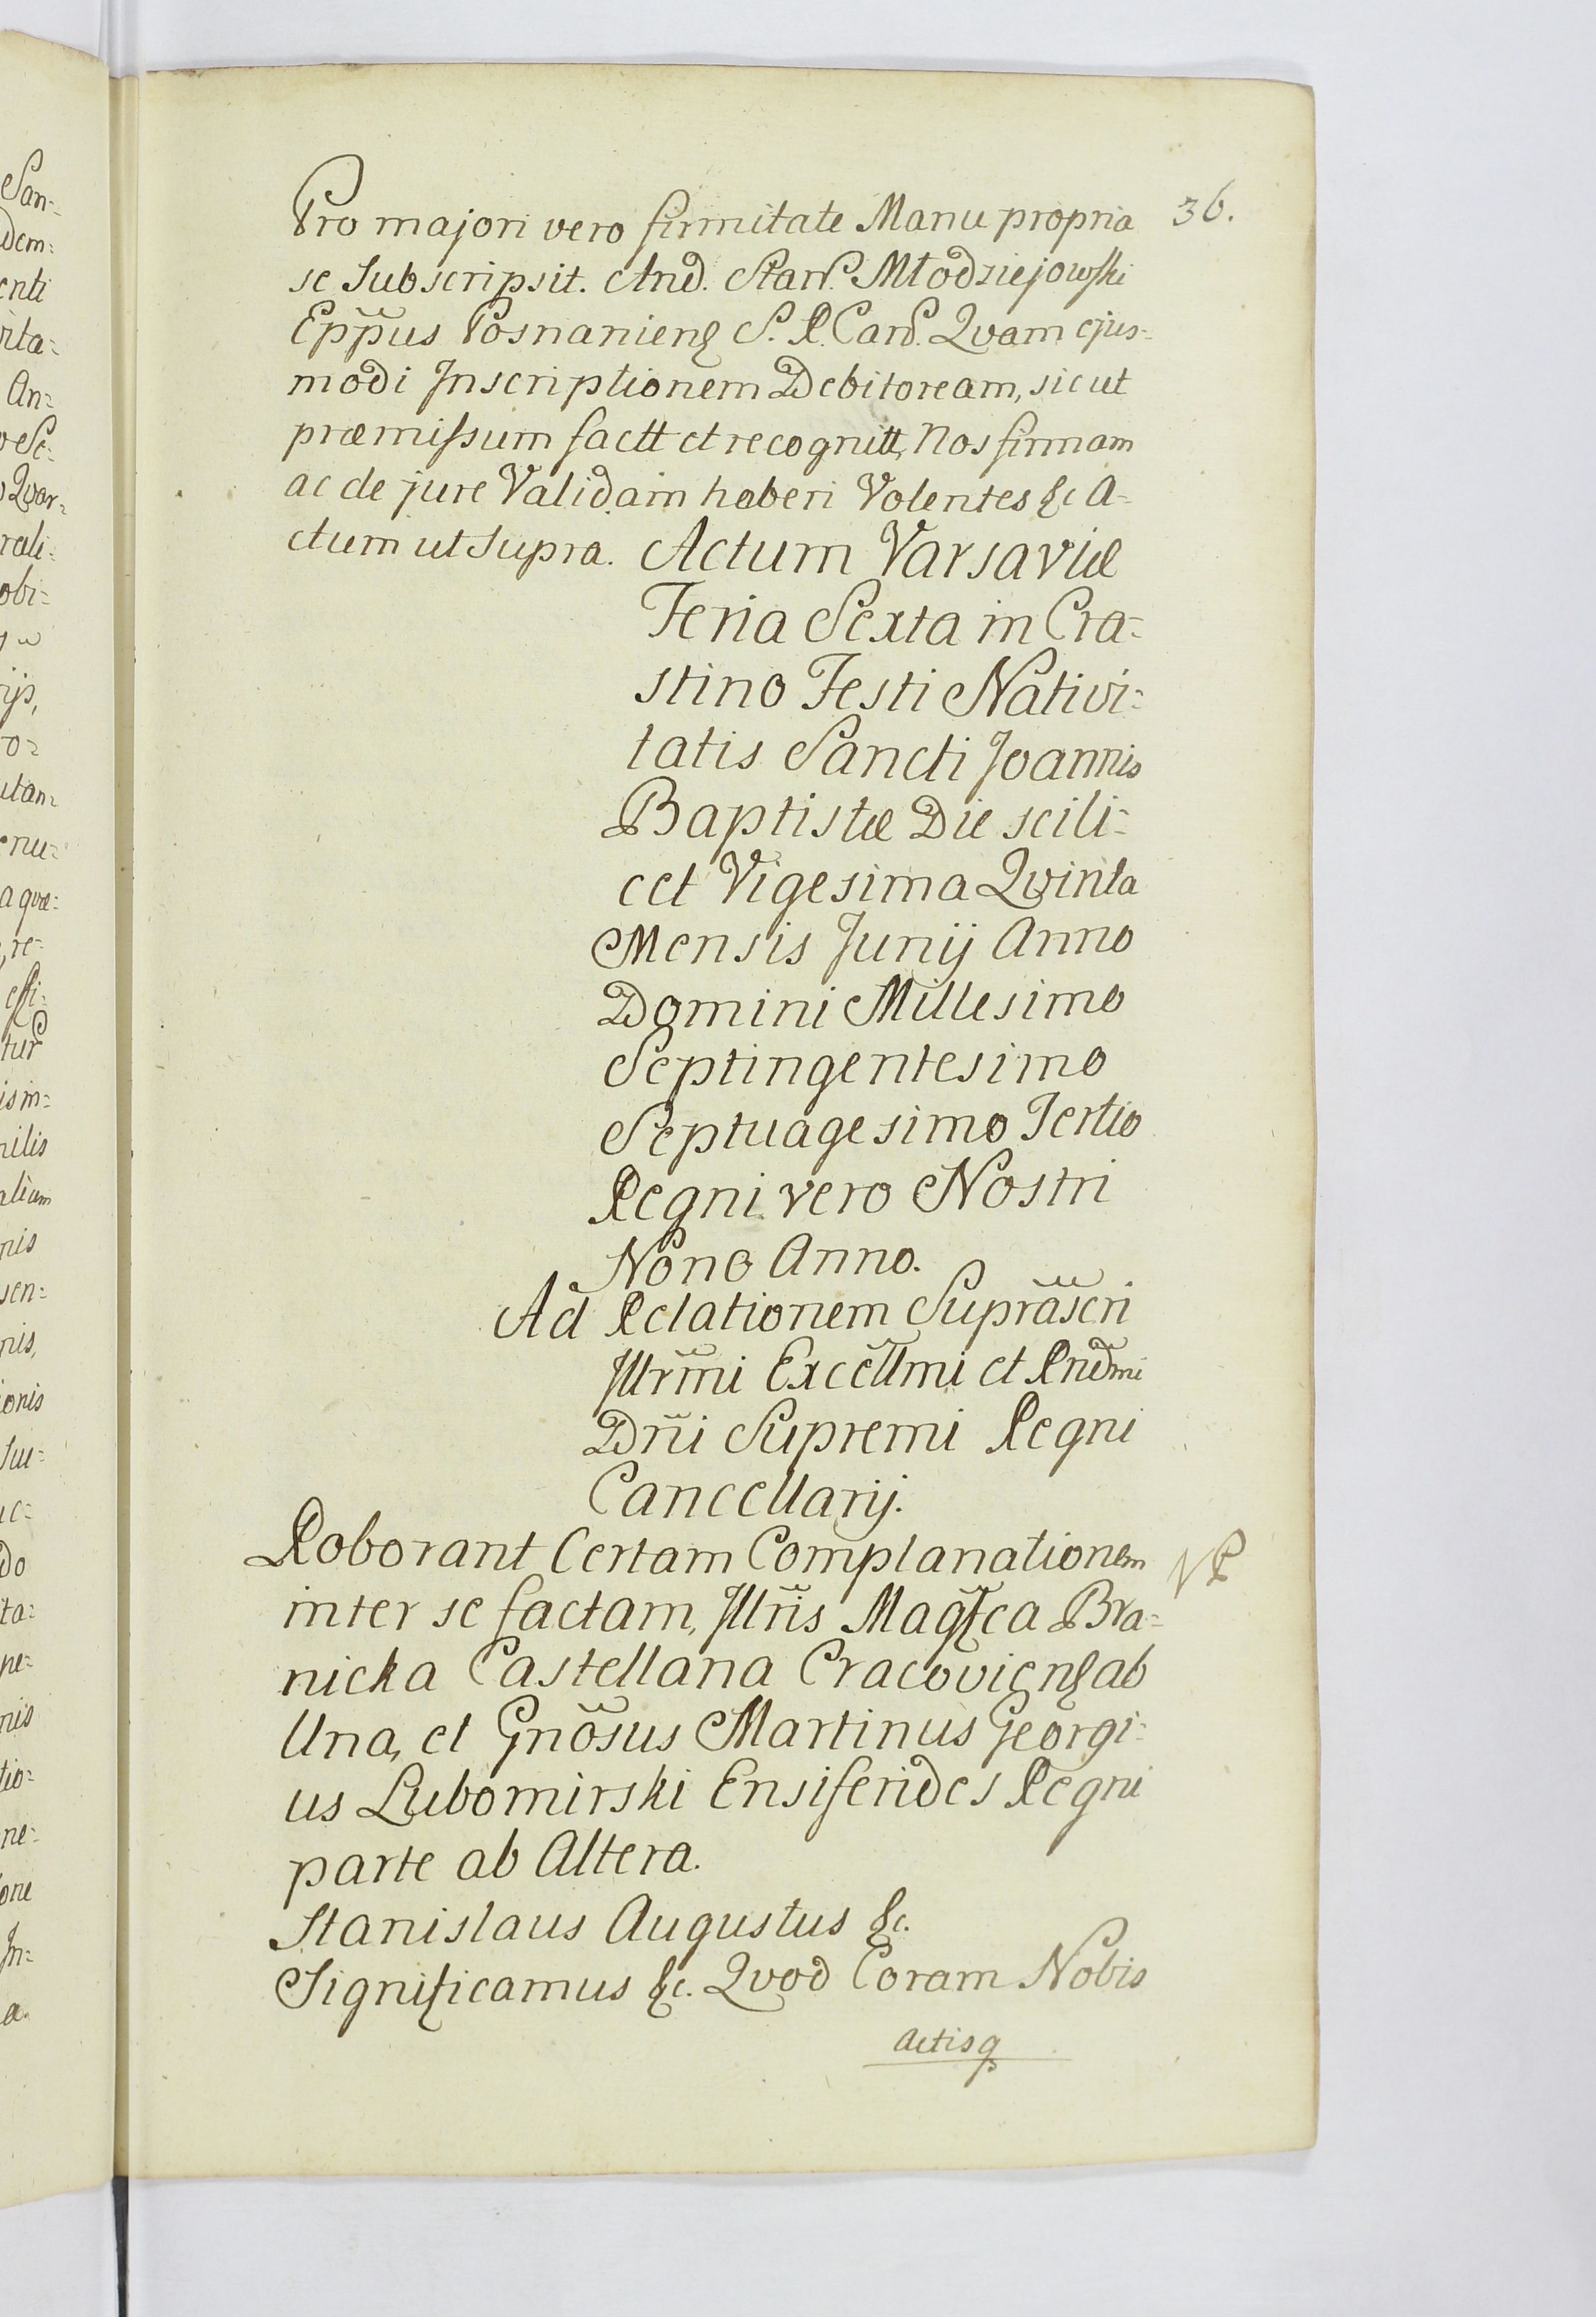 36.
Pro majori vero firmitate Manu propria
se Subscripsit. And. Stan. Młodziejowski
Epp̃us Posnaniens S. R. Canc. Qvam ejus-
modi Inscriptionem Debitoream, sicut
præmissum factt et recognitt, Nos firmam
ac de jure Validam haberi Volentes &c A-
ctum ut Supra. Actum Varsaviæ
Feria Sexta in Cra=
stino Festi Nativi=
tatis Sancti Joannis
Baptistæ Die scili=
cet Vigesima Qvinta
Mensis Junij Anno
Domini Millesimo
Septingentesimo
Septuagesimo Tertio
Regni vero Nostri
Nono Anno.
Ad Relationem Suprãscri
Illrm̃i Excellm̃i et Rndm̃i
Dñi Supremi Regni
Cancellarij.
Roborant Certam Complanationem
inter se factam, Illr̃is Magfca Bra=
nicka Castellana Cracoviens ab
Una, et Gnõsus Martinus Georgi=
us Lubomirski Ensiferides Regni
parte ab Altera.
Stanislaus Augustus &c.
Significamus &c. Qvod Coram Nobis
Actisq